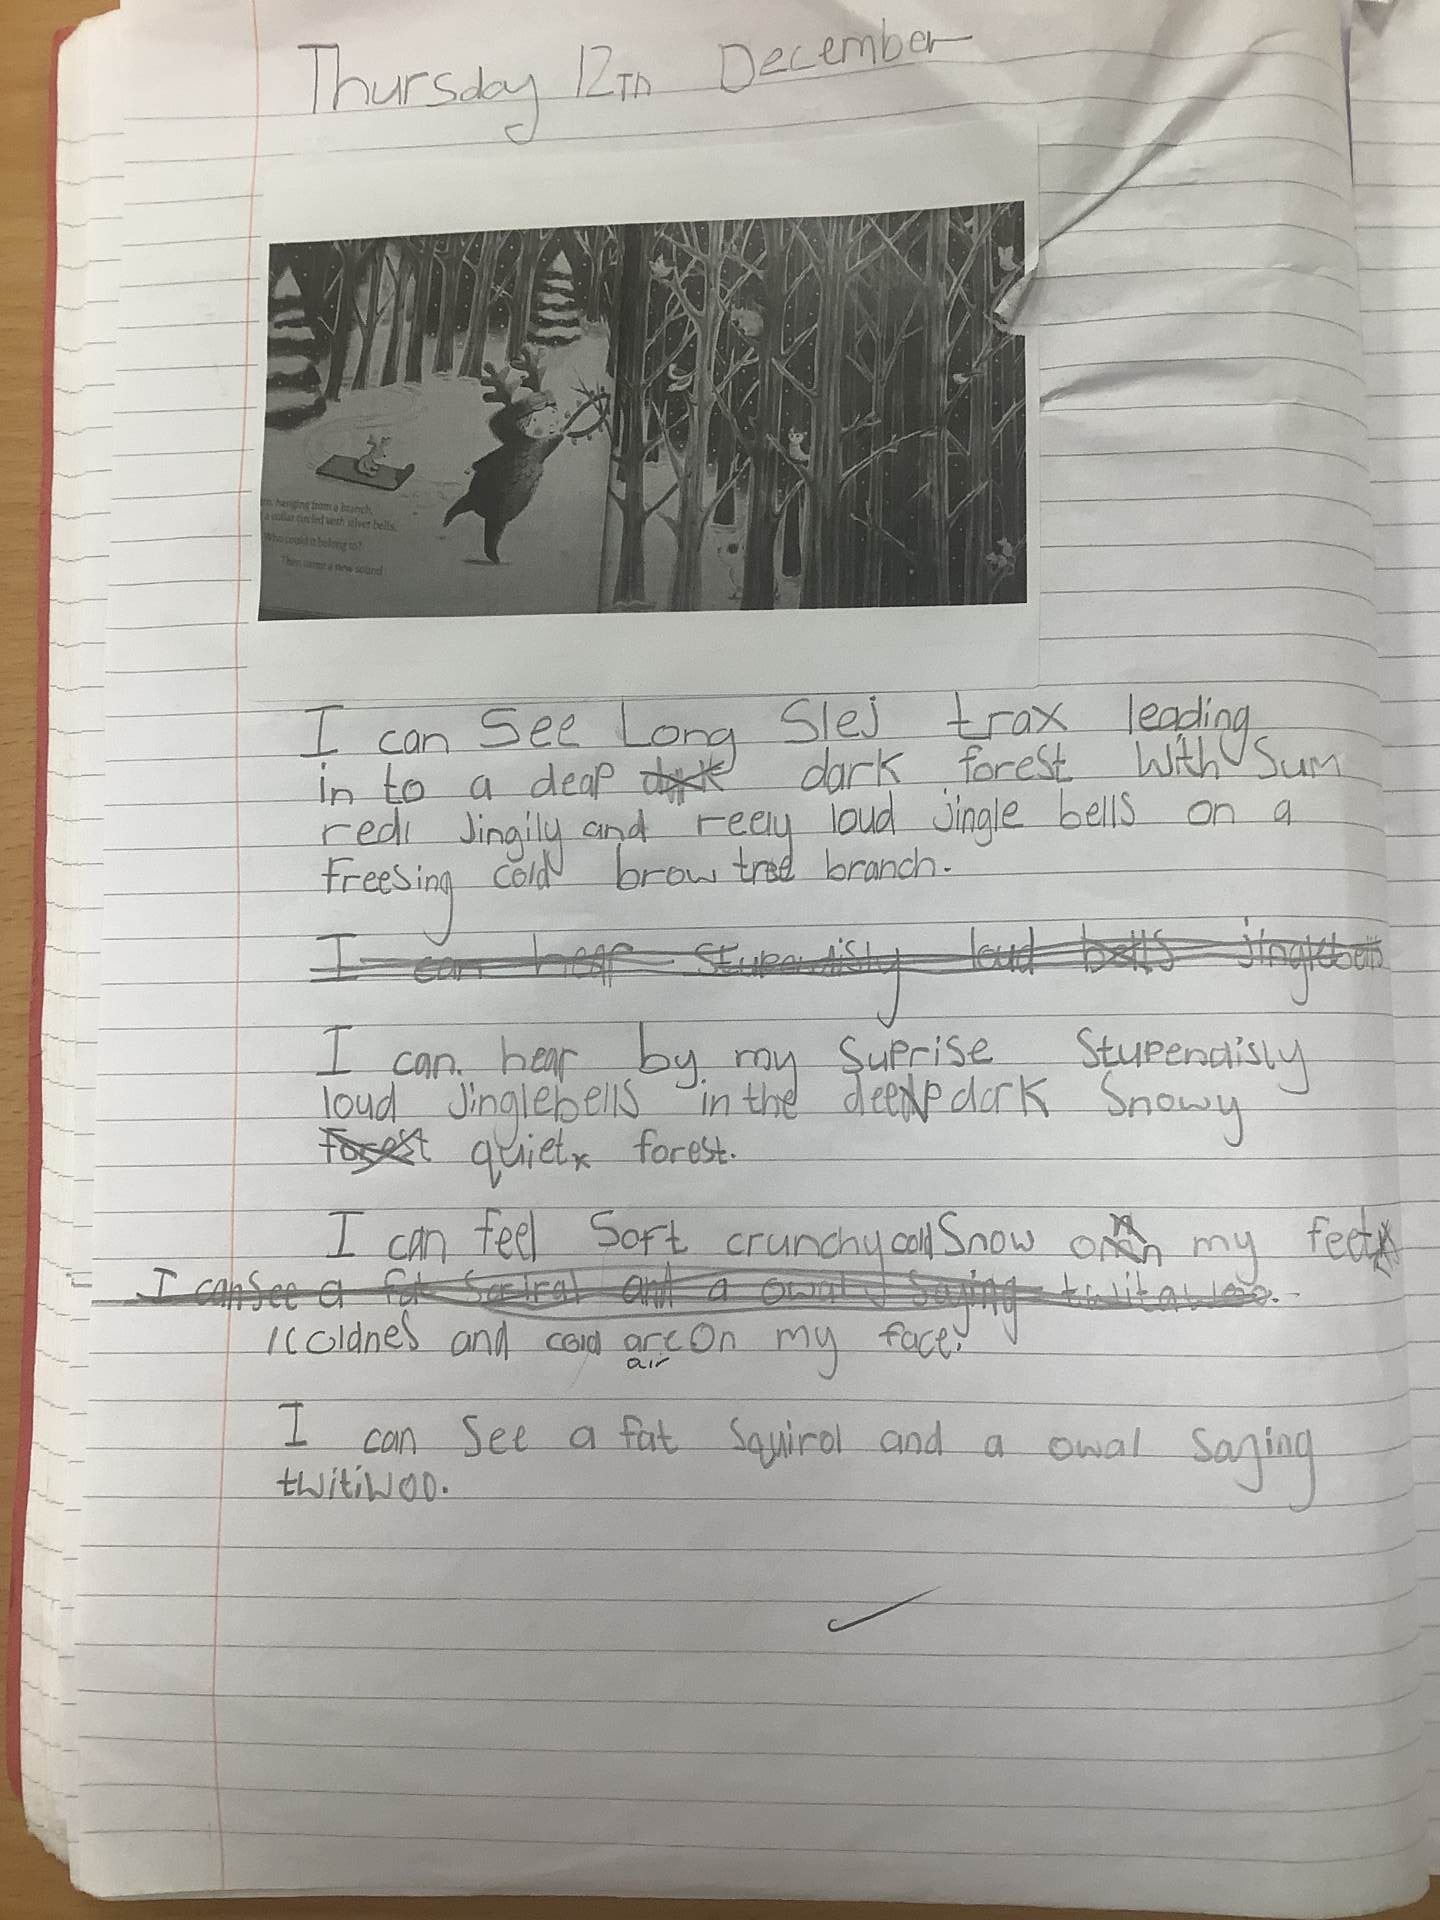 Thursday 12Th December
hanging from a branch,
a collar circled with silver bells.
Who could it belong to?
Then came a new sound
I can See Long Slej trax leading
in to a deap dark dark forest With Sum
redi Jingily and reely loud jingle bells on a
freesing cold brow tree branch.
I can hear stupendisly loud bells jinglebells
I can hear by my Suprise Stupendisly
loud Jinglebells in the deep dark Snowy
forest quiet forest.
I can feel Soft crunchy cold Snow on my feet
I can See a fat and a owal Saying
coldnes and cold are On my face.
air
I can See a fat Squirol and a owal Saying
twitiwoo.